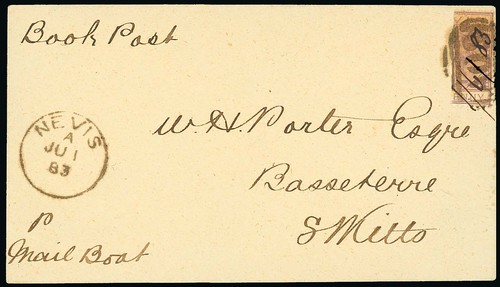 Book Post
NEVIS
A
JU 1
83
W. H. Porter Esqre
Basseterre
St Kitts
p
Mail Boat